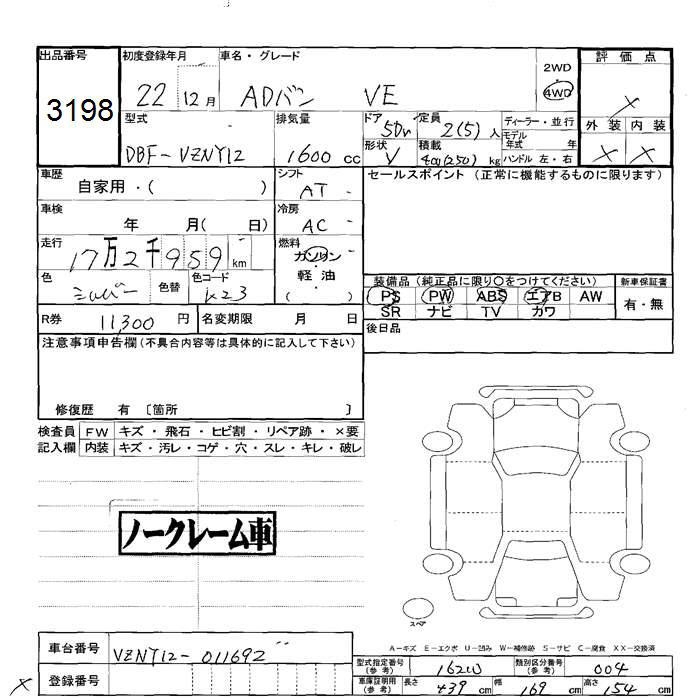 出品番号 初度登録年月 車名・グレード 2WD 評価点
3198 22 12月 ADバン VE 4WD ×
型式 排気量 ドア 5Dr 定員 2(5)人 ディーラー・並行 外装 内装
DBF-VZNY12 1600cc 形状 V 積載 400(250)kg モデル年式 年 ハンドル 左・右 × ×
車歴 自家用・( ) シフト AT セールスポイント (正常に機能するものに限ります)
車検 年 月( 日) 冷房 AC
走行 17万2千959km 燃料 ガソリン・軽油 ( )
色 シルバー 色替 色コード K23
装備品 (純正品に限り○をつけてください) 新車保証書
PS PW ABS エアB AW 有・無
SR ナビ TV カワ
R券 11,300円 名変期限 月 日 後日品
注意事項申告欄(不具合内容等は具体的に記入して下さい)
修復歴 有 [箇所 ]
検査員 FW キズ・飛石・ヒビ割・リペア跡・×要
記入欄 内装 キズ・汚レ・コゲ・穴・スレ・キレ・破レ
ノークレーム車
スペア
A-キズ E-エクボ U-凹み W-補修跡 S-サビ C-腐食 XX-交換済
車台番号 VZNY12-011692
型式指定番号(参考) 16200 類別区分番号(参考) 004
× 登録番号
車庫証明用(参考) 長さ 439cm 幅 169cm 高さ 154cm